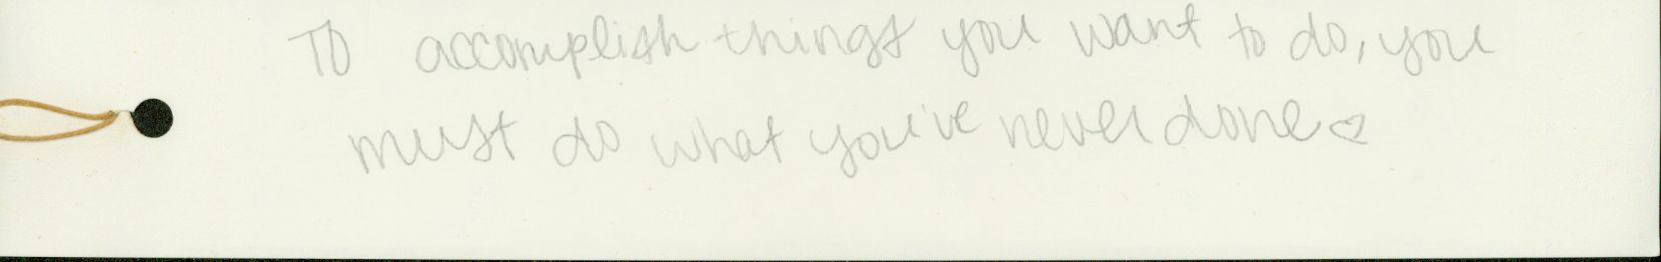 To accomplish things you want to do, you
must do what you've never done♡